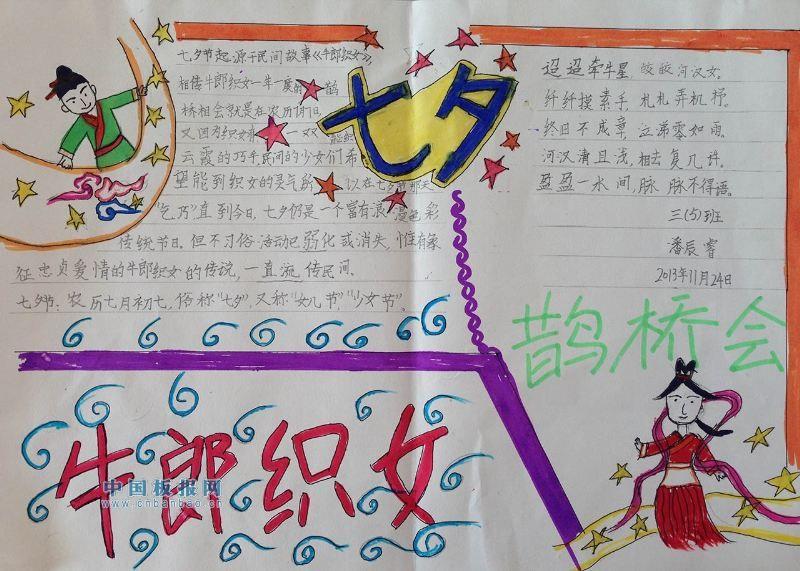 七夕节起源于民间故事《牛郎织女》,
相传牛郎织女一年一度的 鹊
桥相会就是在农历7月7日,
又因为织女 一双 能织
云霞的巧手民间的少女们希
望能到织女的灵气所 以在七夕节那天
"乞巧"直到今日,七夕仍是一个富有浪 漫色彩
传统节日,但不习俗活动已弱化或消失,惟有象
征忠贞爱情的牛郎织女的传说,一直流传民间.
七夕节:农历七月初七,俗称"七夕",又称"女儿节","少女节"。
七夕
迢迢牵牛星 皎皎河汉女.
纤纤擢素手,札札弄机杼.
终日不成章,泣涕零如雨.
河汉清且浅,相去复几许.
盈盈一水间,脉脉不得语.
三(5)班
潘辰睿
2013年11月24日
鹊桥会
牛郎织女
中国板报网
www.cnbanbao.cn